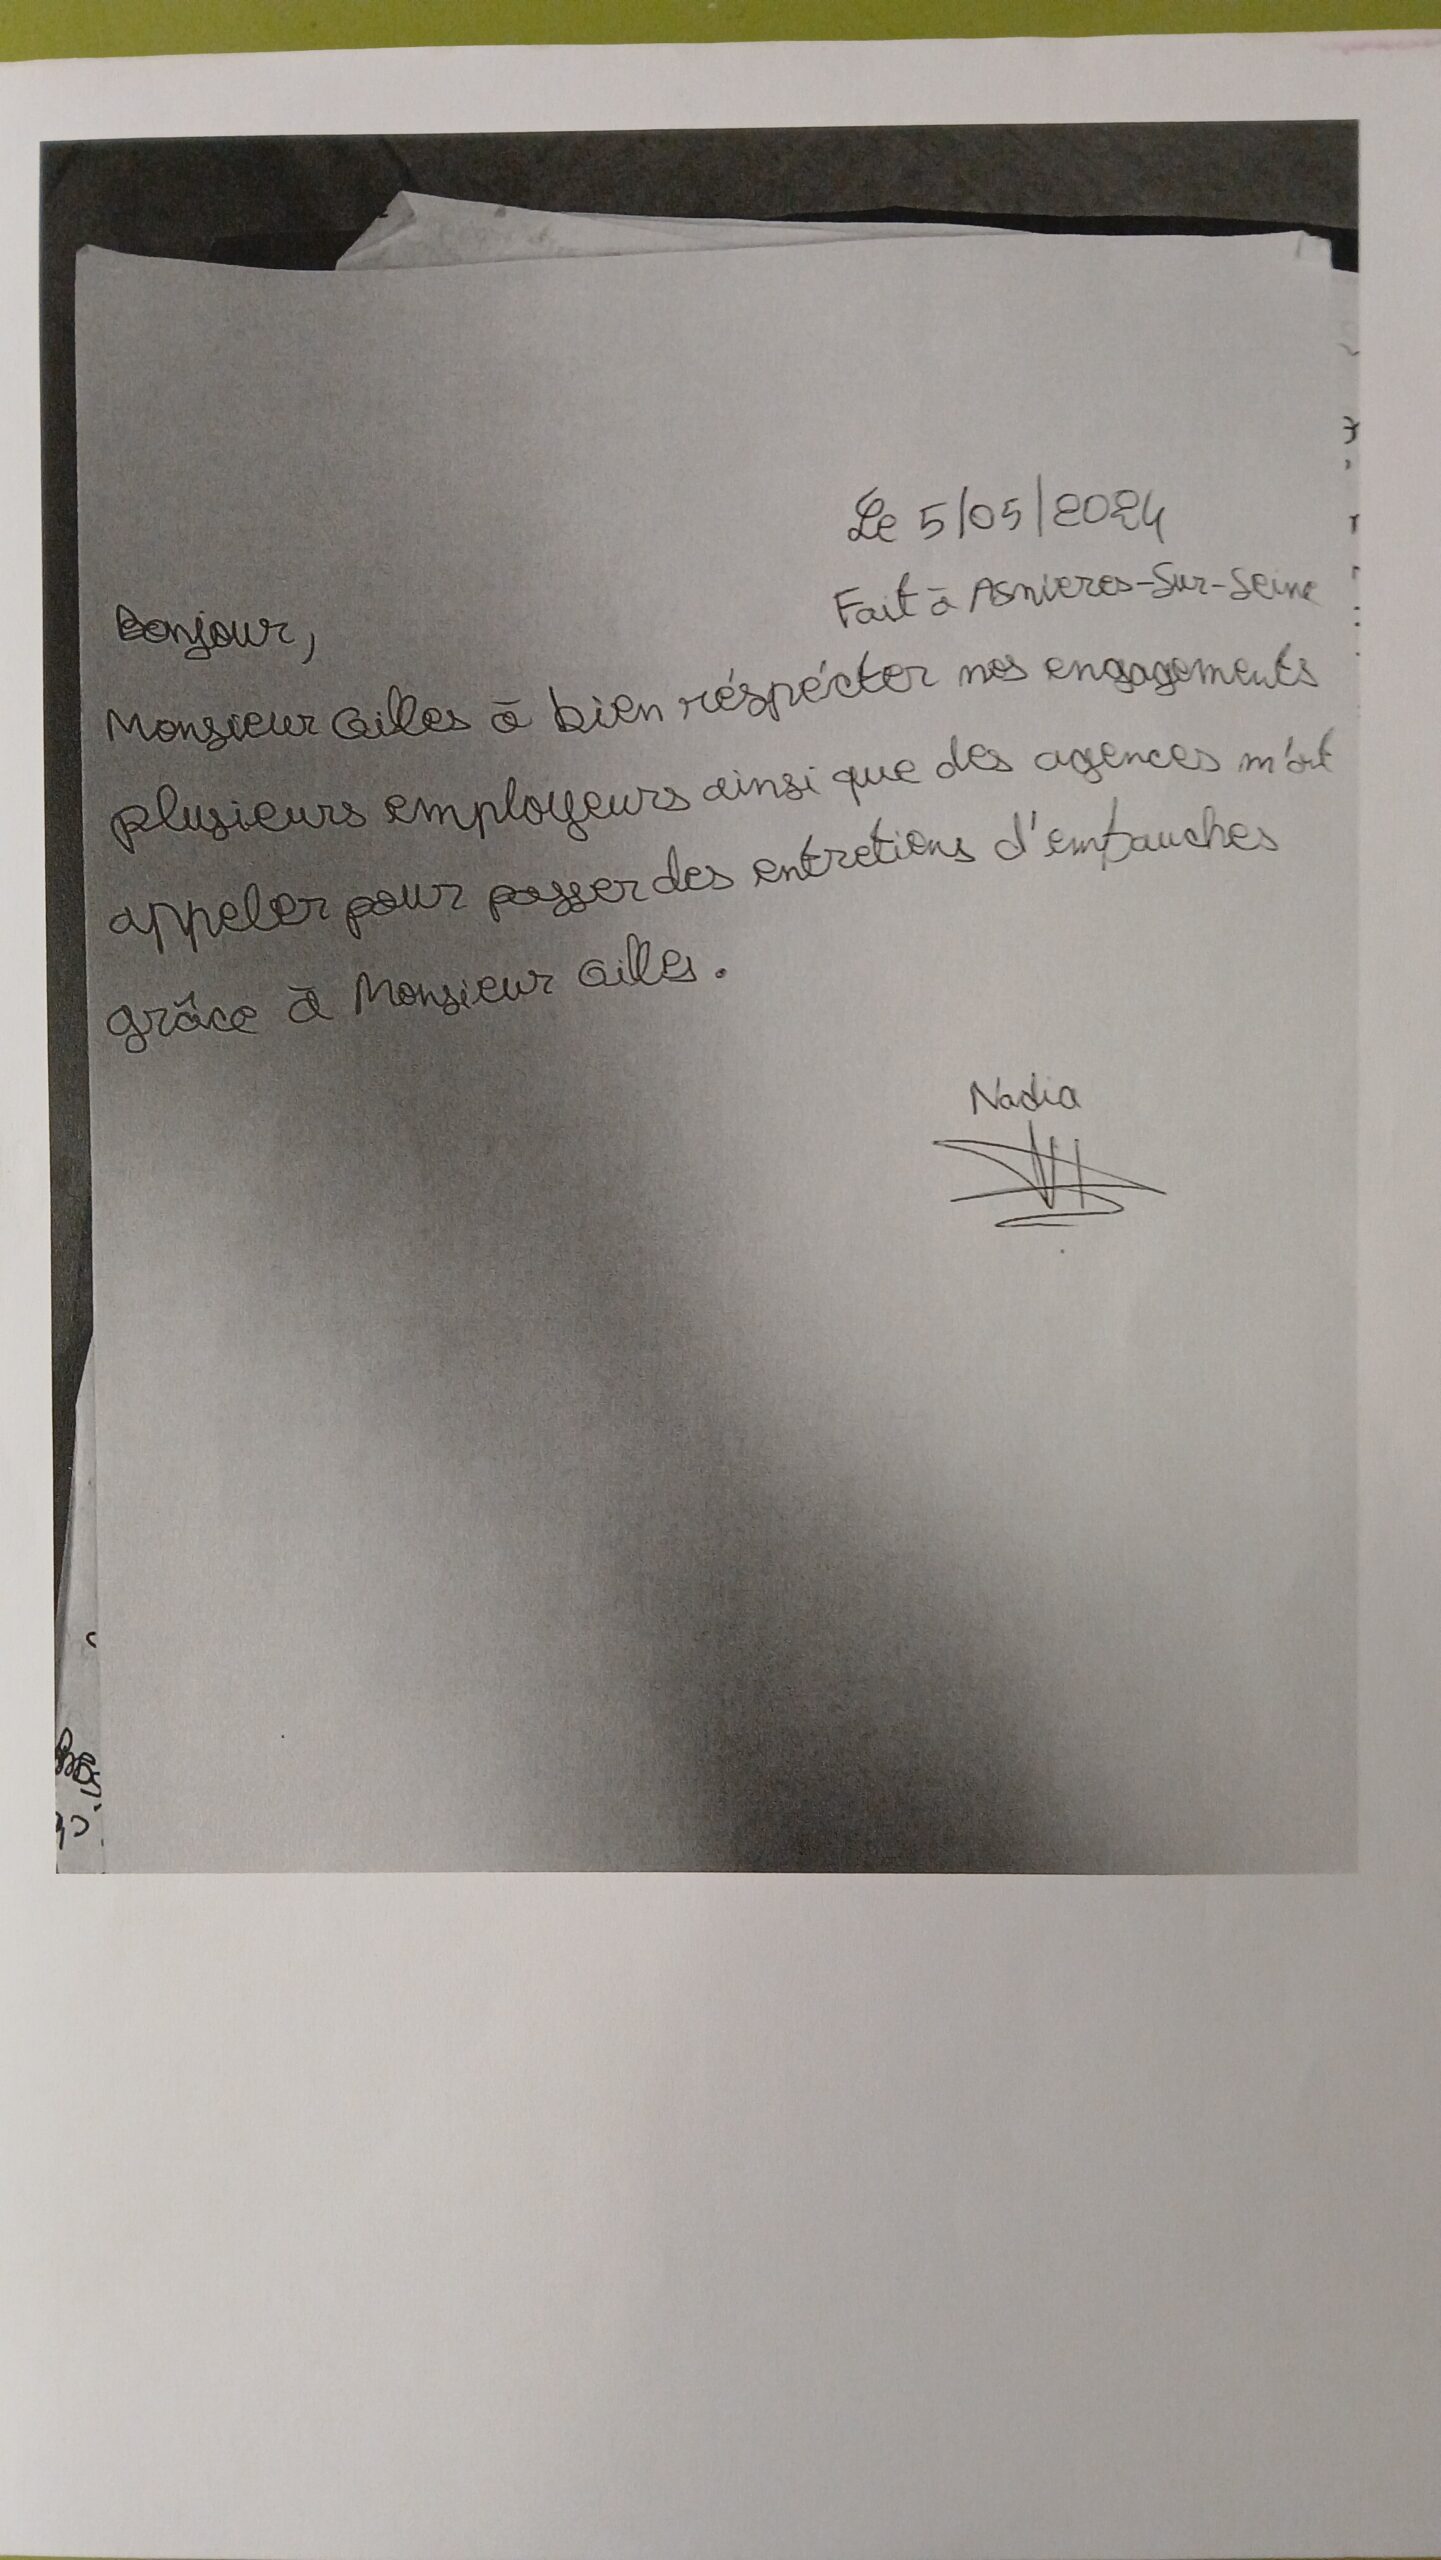 Le 5/05/2024
Fait à Asnieres-Sur-Seine
Bonjour,
Monsieur Gilles à bien réspécter nos engagements
plusieurs employeurs ainsi que des agences m'ont
appeler pour passer des entretions d'embauches
grâce à Monsieur Gilles.
Nadia